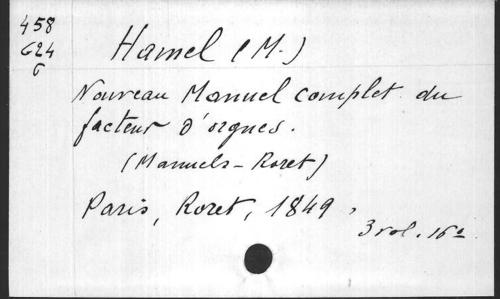 458
G24
G
Hamel (M.)
Nouveau Manuel complet du
facteur d'orgues.
(Manuels-Roret)
Paris, Roret, 1849,
3 vol. 16º